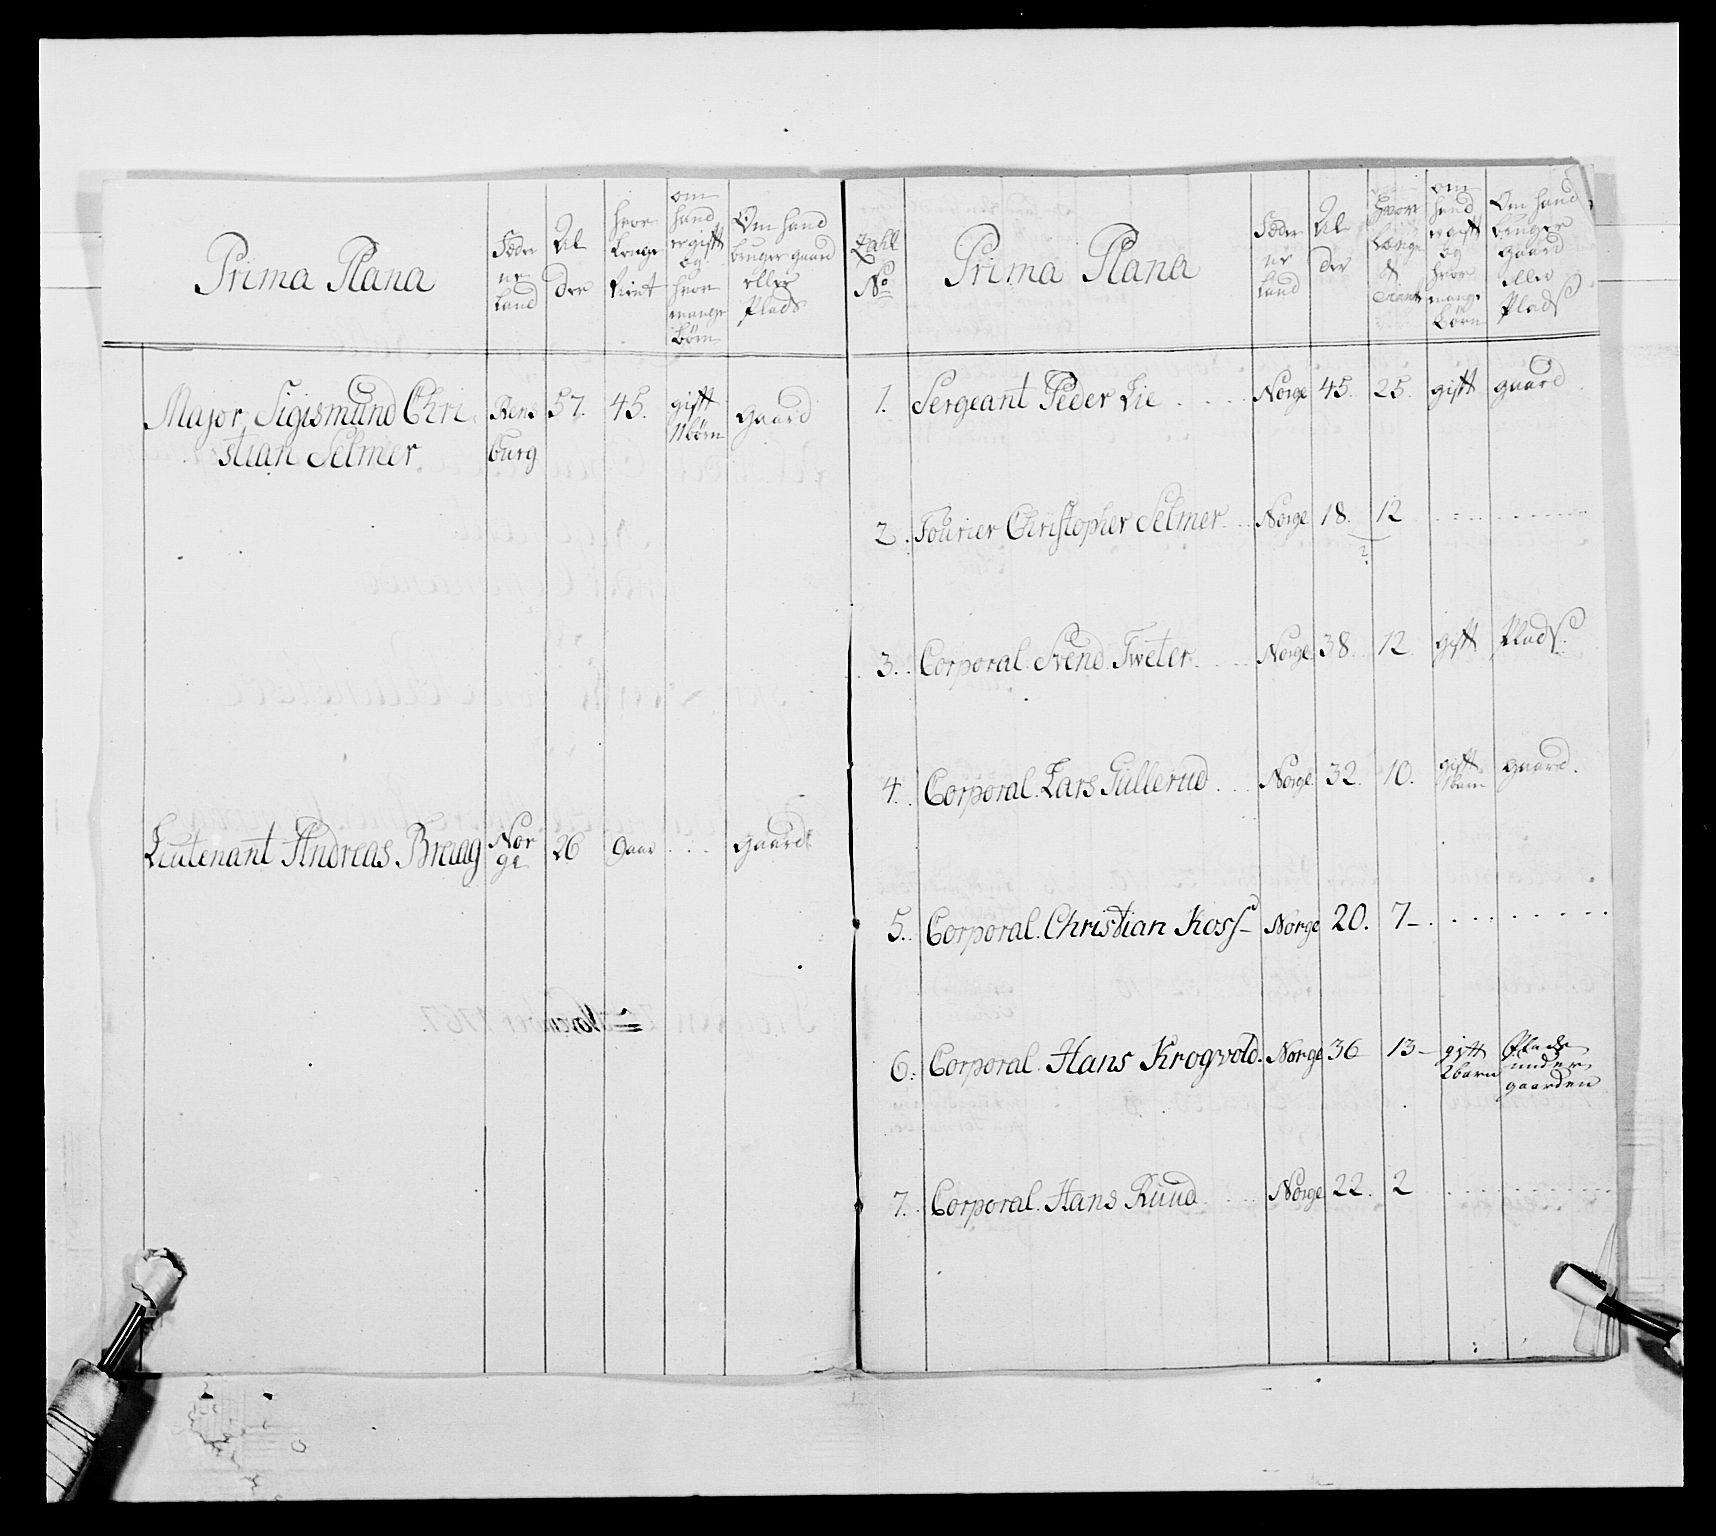 Prima Plana
Føde
ne
Land
Al
der
hvor
Længe
tient
om
hand
er gift
og
hvor
mange
børn
Om hand
bruger gaard
eller
Plads
Major, Sigismund Chri
stian Selmer
Rens
burg
57.
45.
gift
11 børn
gaard
Lieutenant Andreas Braag
Nor
ge
26
9 aar
. . .
gaard
Zahl
No
Prima Plana
Føde
ne
Land
Al
der
hvor
Længe
tient
om
hand
er gift
og
hvor
mange
børn
Om hand
bruger
gaard
eller
Plads
1. Sergeant Peder Lie . . . . Norge 45. 25. gift gaard
2. Fourier Christopher Selmer . . Norge 18. 12
3. Corporal Svend Tweter . . . Norge 38. 12 gift Plads
4. Corporal Lars Gullerud . . . Norge 32. 10. gift gaard.
1 barn
5. Corporal Christian Koss Norge 20. 7 –
6. Corporal Hans Krogvold. Norge 36 13 – gift Plads
2 barn under
gaarden
7. Corporal Hans Ruud . . . Norge 22. 2